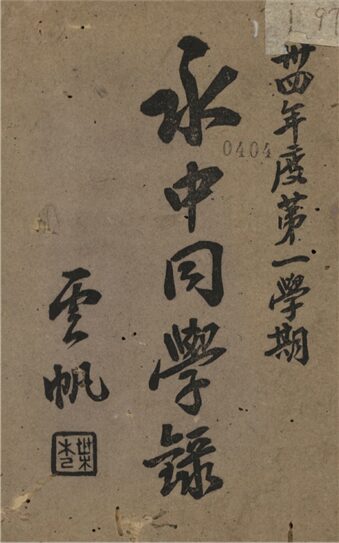 卅四年度第一學期
永中同學錄
雲帆
0404
97